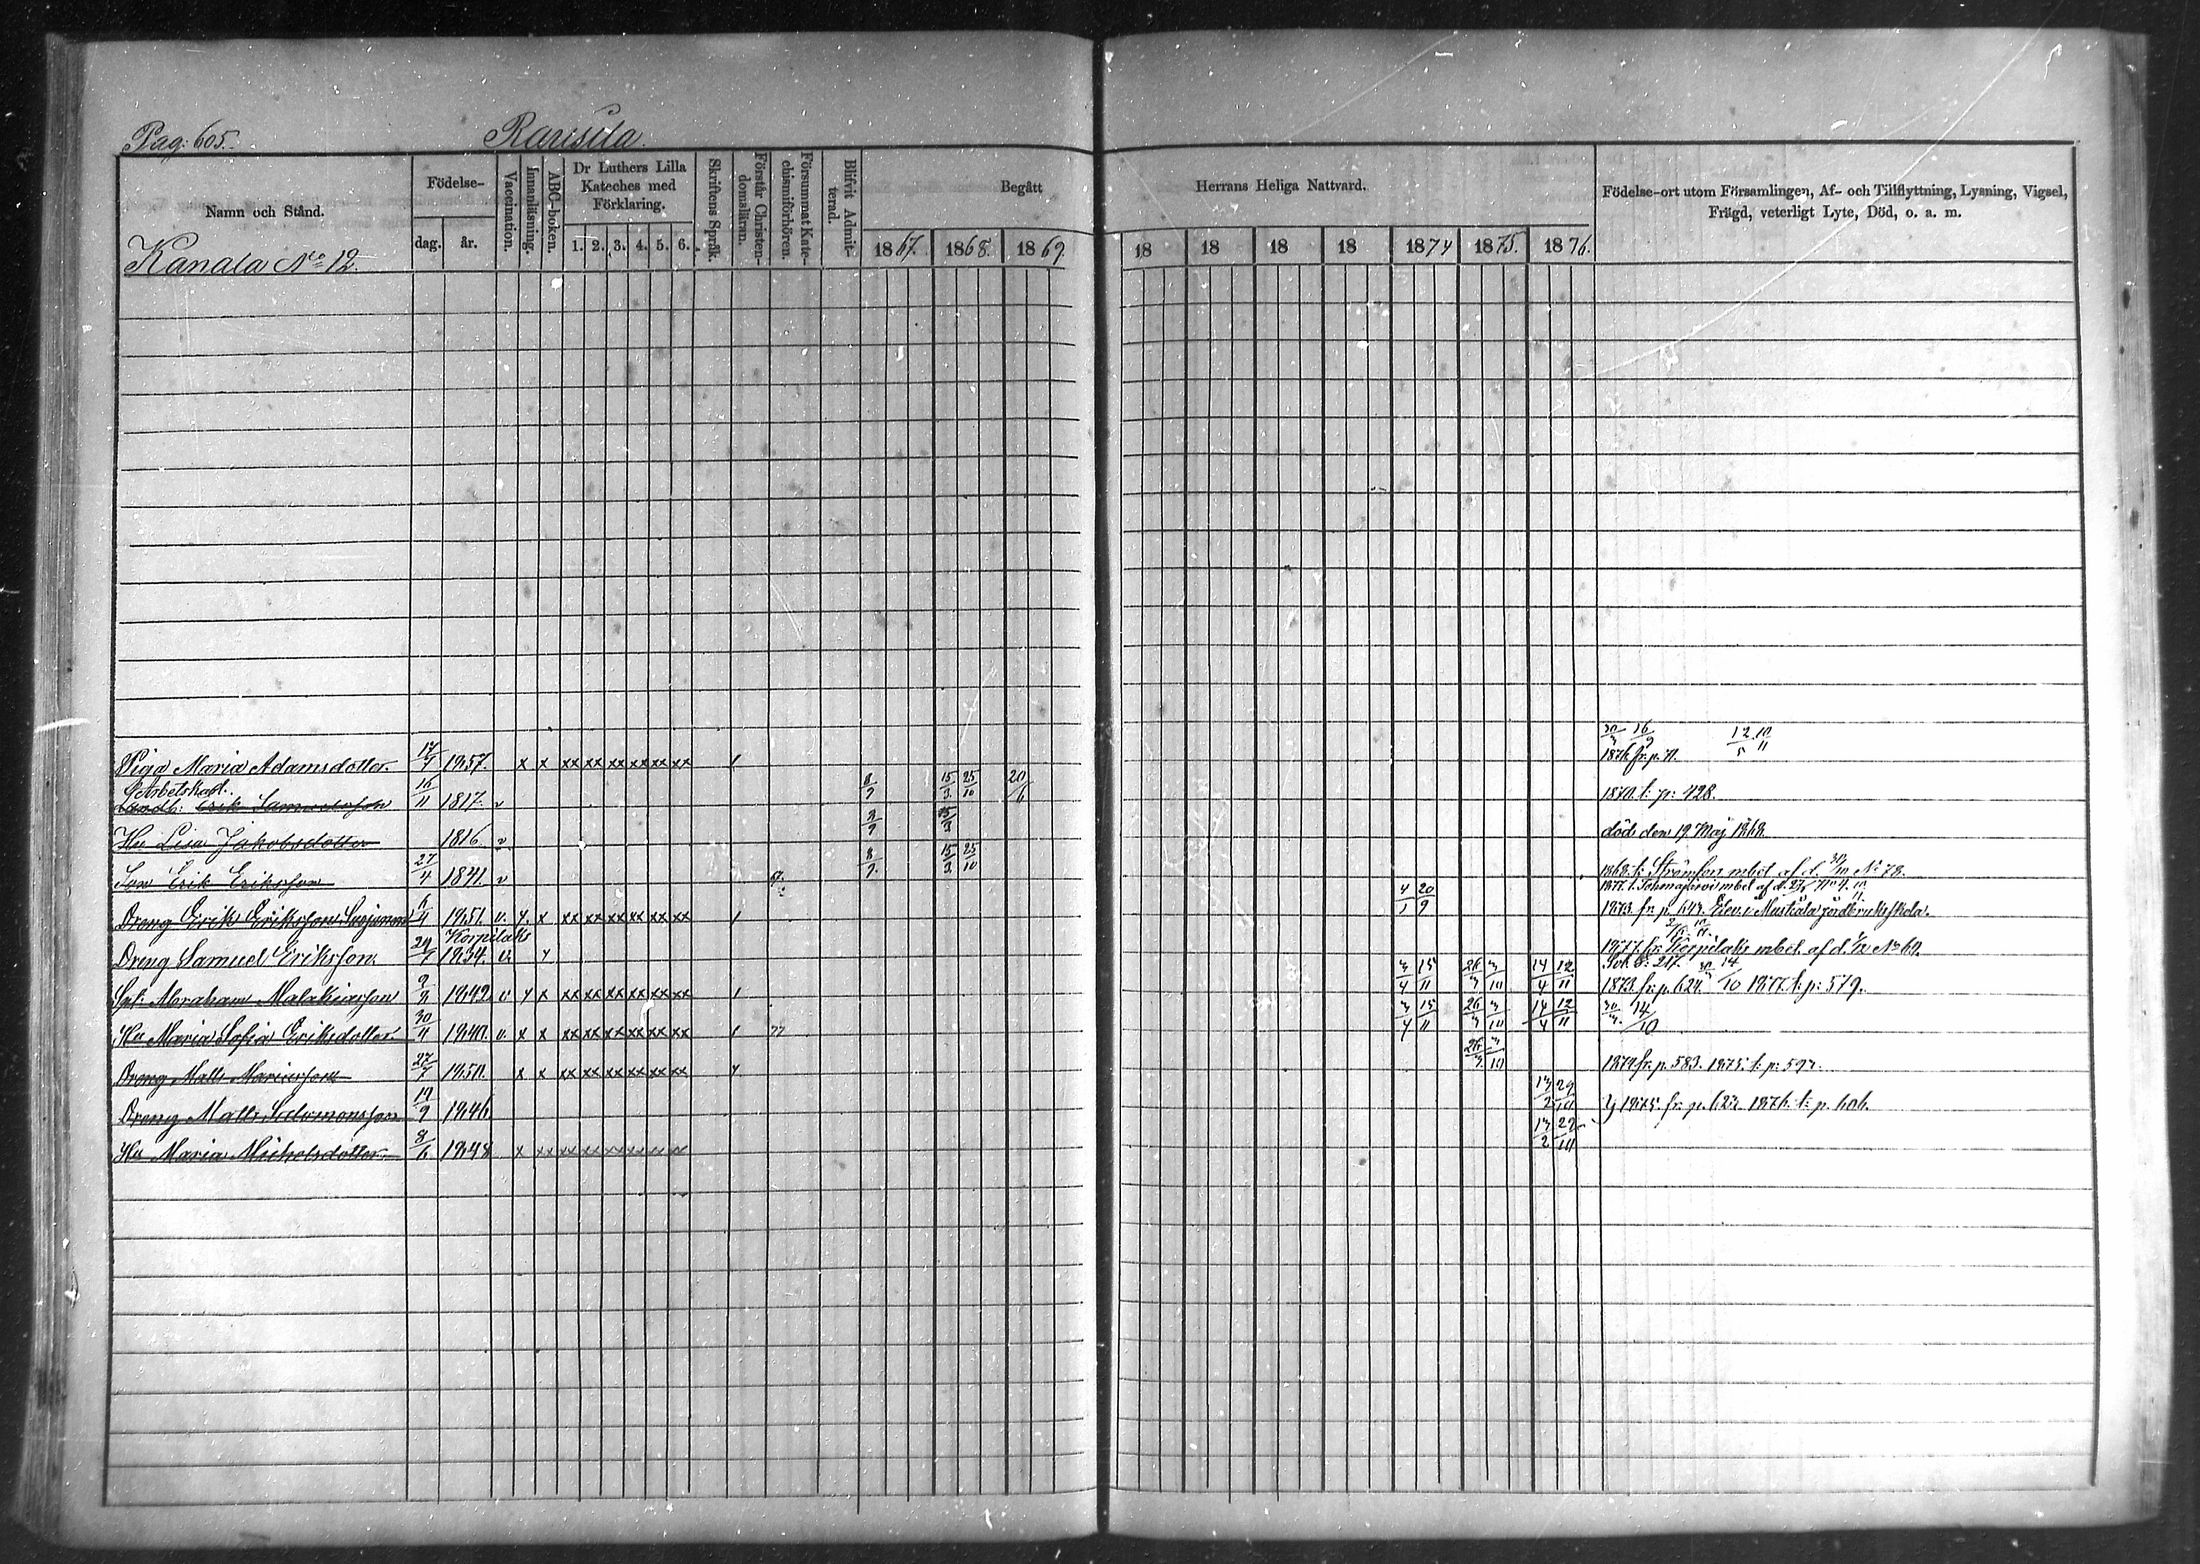 Pag: 605.
Namn och Stånd.
Födelse-
dag.
år.
Vaccination.
Innanläsning.
ABC-boken.
Dr Luthers Lilla
Kateches med
Förklaring.
1. 2. 3. 4. 5. 6.
Skriftens Språk.
Förstår Christen-
domsläran.
Försummat Kate-
chismiförhören.
Blifvit Admit-
terad.
Begått
Herrans Heliga Nattvard.
Födelse-ort utom Församlingen, Af- och Tillflyttning, Lysning, Vigsel,
Frägd, veterligt Lyte, Död, o. a. m.
Kanala No 12.
1867. 1868. 1869. 18 18 18 18 1874 1875. 1876.
Piga Maria Adamsdotter. 17/7 1857. x x xx xx xx xx xx xx / 30/3 16/9 12/5 10/11
1876 fr. p. 71.
Arbetskarl.
Landb: Erik Samuelsson 16/11 1817. v 8/9 15/3. 25/10 20/6 1870. t: p: 428.
Hu Lisa Jakobsdotter 1816 v 3/9 15/3 död den 19 Maj 1868
Son Erik Eriksson 27/4 1841. v 67. 8/9. 15/3. 25/10 1868. t: Strömfors mbet af d. 30/10 No 78.
Dreng Erik Eriksson 6/4 1851. v. x xx xx xx xx xx xx / 4/1 20/9 1873. fr. p. 643.
Korpilaks
Dreng Samuel Eriksson. 1834. v. 1877. fr. Korpilaks mbet. af d.
Abraham Malakiasson 9/3 1849. v x xx xx xx xx xx xx / 3/4 15/11 26/3 3/10 14/4 12/11 1873. fr. p. 624. 14/10 1877. t: p: 579.
Hu Maria Sofia Eriksdotter 30/11 1840. v. x x xx xx xx xx xx xx / 77 3/4 15/11 26/3 3/10 14/4 12/11 14/10
Dreng Matts 27/7 1850. x x xx xx xx xx xx xx 26/3. 3/10 1874 fr. p. 583. 1875. t: p: 592.
Dreng Matts Salomonsson 19/9 1846 13/2 29/10 1875. fr. p. 622. 1876. t: p. 606.
Hu Maria Michelsdotter 8/6 1848 x xx xx xx xx xx xx xx 13/2 29/10